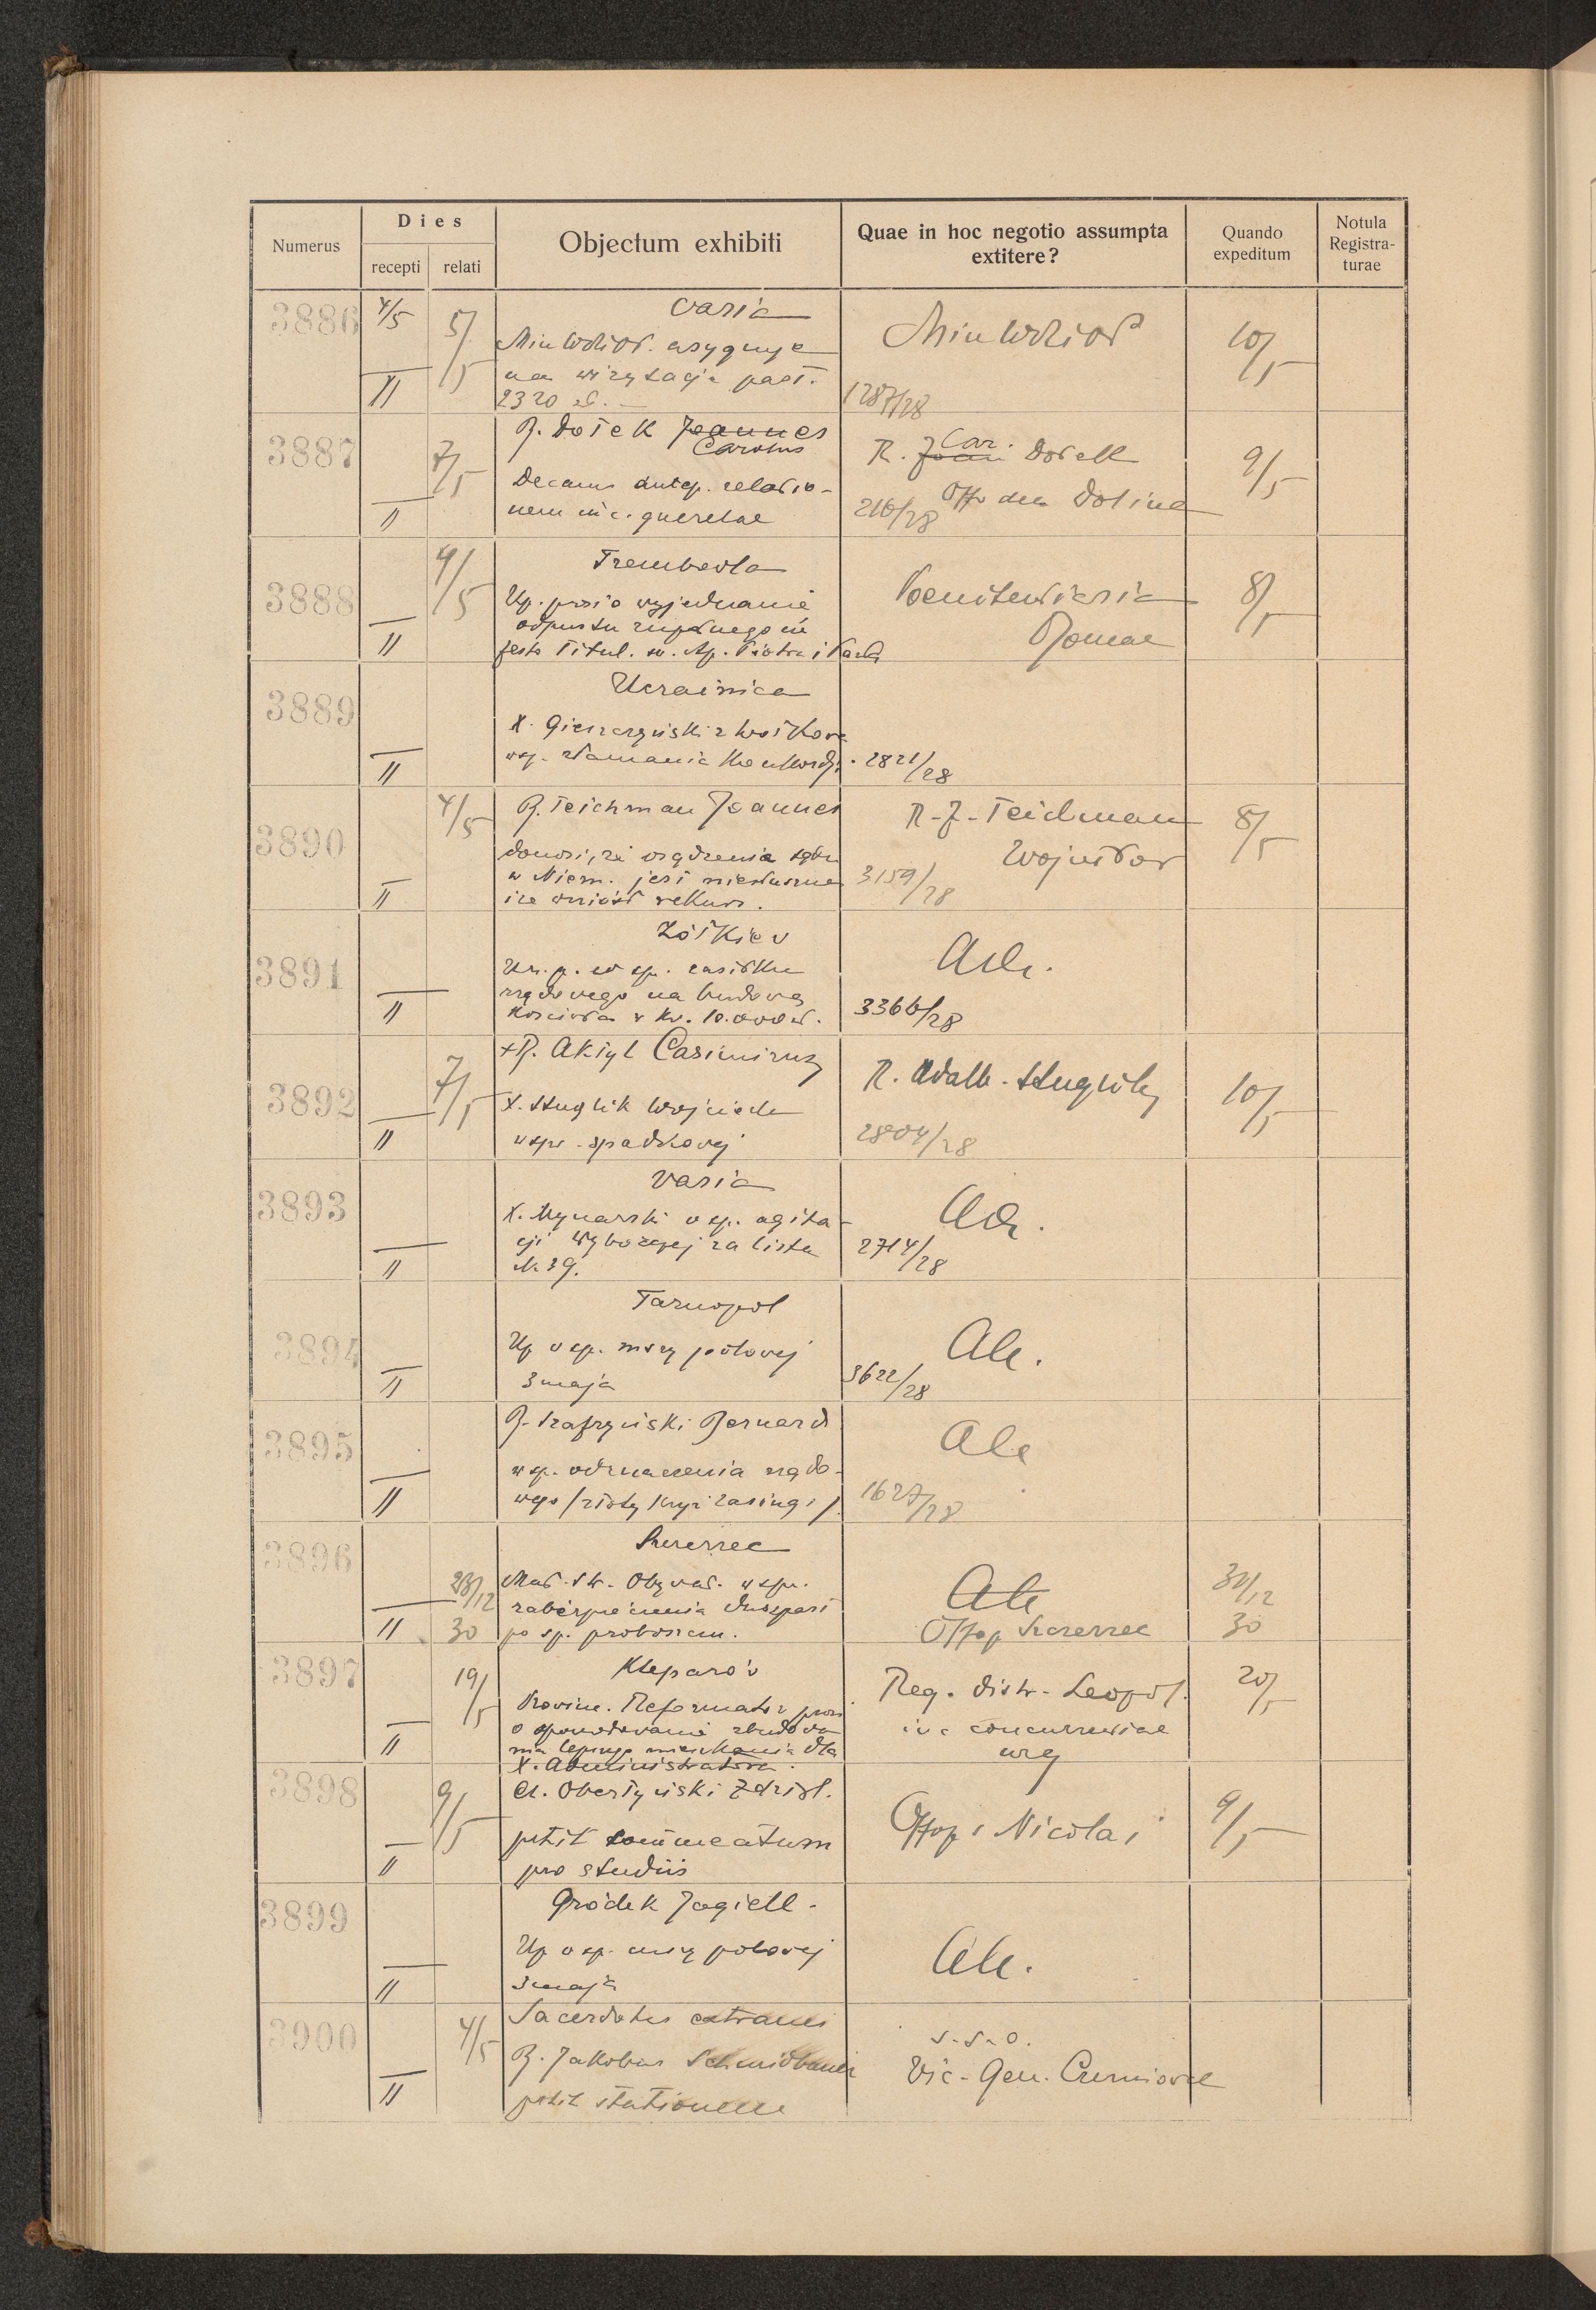 Numerus
Dies
recepti
relati
Objectum exhibiti
Quae in hoc negotio assumpta
extitere?
Quando
expeditum
Notula
Registra-
turae
3886
4/5
5/5
Varia
asygnuje
na wizytację past.
2320 zł.
1287/28
10/5
3887
"
7/5
R. Dołek Joannes
Carolus
Decanus antep. relatio-
nem in c. querelae
R. Car.
216/28
Dolina
9/5
3888
"
4/5
Trembovla
Up. prosi o wyjednanie
odpustu zupełnego in
festo Titul. św. Ap. Piotra i Pawła
Poenitentiaria
Romae
8/5
3889
"
Ucrainica
X.
wsp. złamania Konkord.
2821/28
3890
"
4/5
R. Teichman Joannes
donosi, że orądzenie sądu
w Niem. jest niesłuszne
i że wniósł rekurs.
R. J. Teichman
Wojniłow
3159/28
8/5
3891
"
Żółkiew
w sp. zasiłku
rządowego na budowę
Kościoła w kw. 10.000 zł.
Ada.
3366/28
3892
"
7/5
+R. Akigl Casimirus
X. Sługlik Wojciech
w spr. spadkowej
R. Adalb. Sługlik
2804/28
10/5
3893
"
Varia
X. Mynarski w sp. agita-
cji wyborczej za listą
N. 39.
Ada.
2714/28
3894
"
Tarnopol
Up w sp. mszy polowej
3 maja
Ada.
3622/28
3895
"
R. Bernard
w sp. odznaczenia rządo-
wego /złoty Krzyż zasługi/.
Ada
1627/28
3896
"
23/12
30
Szczerzec
w spr.
zabezpieczenia duszpast
po sp. proboszczu.
Ada
Offop Szczerzec
31/12
30
3897
"
19/5
Kleparów
Provinc. Reformatów prosi
o spowodowanie zbudowa
nia lepszego mieszkania dla
X. Administratora.
Reg. distr. Leopol.
in c. concurrentiae
urg
20/5
3898
"
9/5
Cl. Obertyński Zdzisł.
petit commeatum
pro studiis
Offop s Nicolai
9/5
3899
"
Gródek Jagiell.
Up w sp. mszy polowej
3 maja
Ada.
3900
"
4/5
Sacerdotes extranei
R. Jakobus Schmidbauer
petit stationem
Vic. Gen.